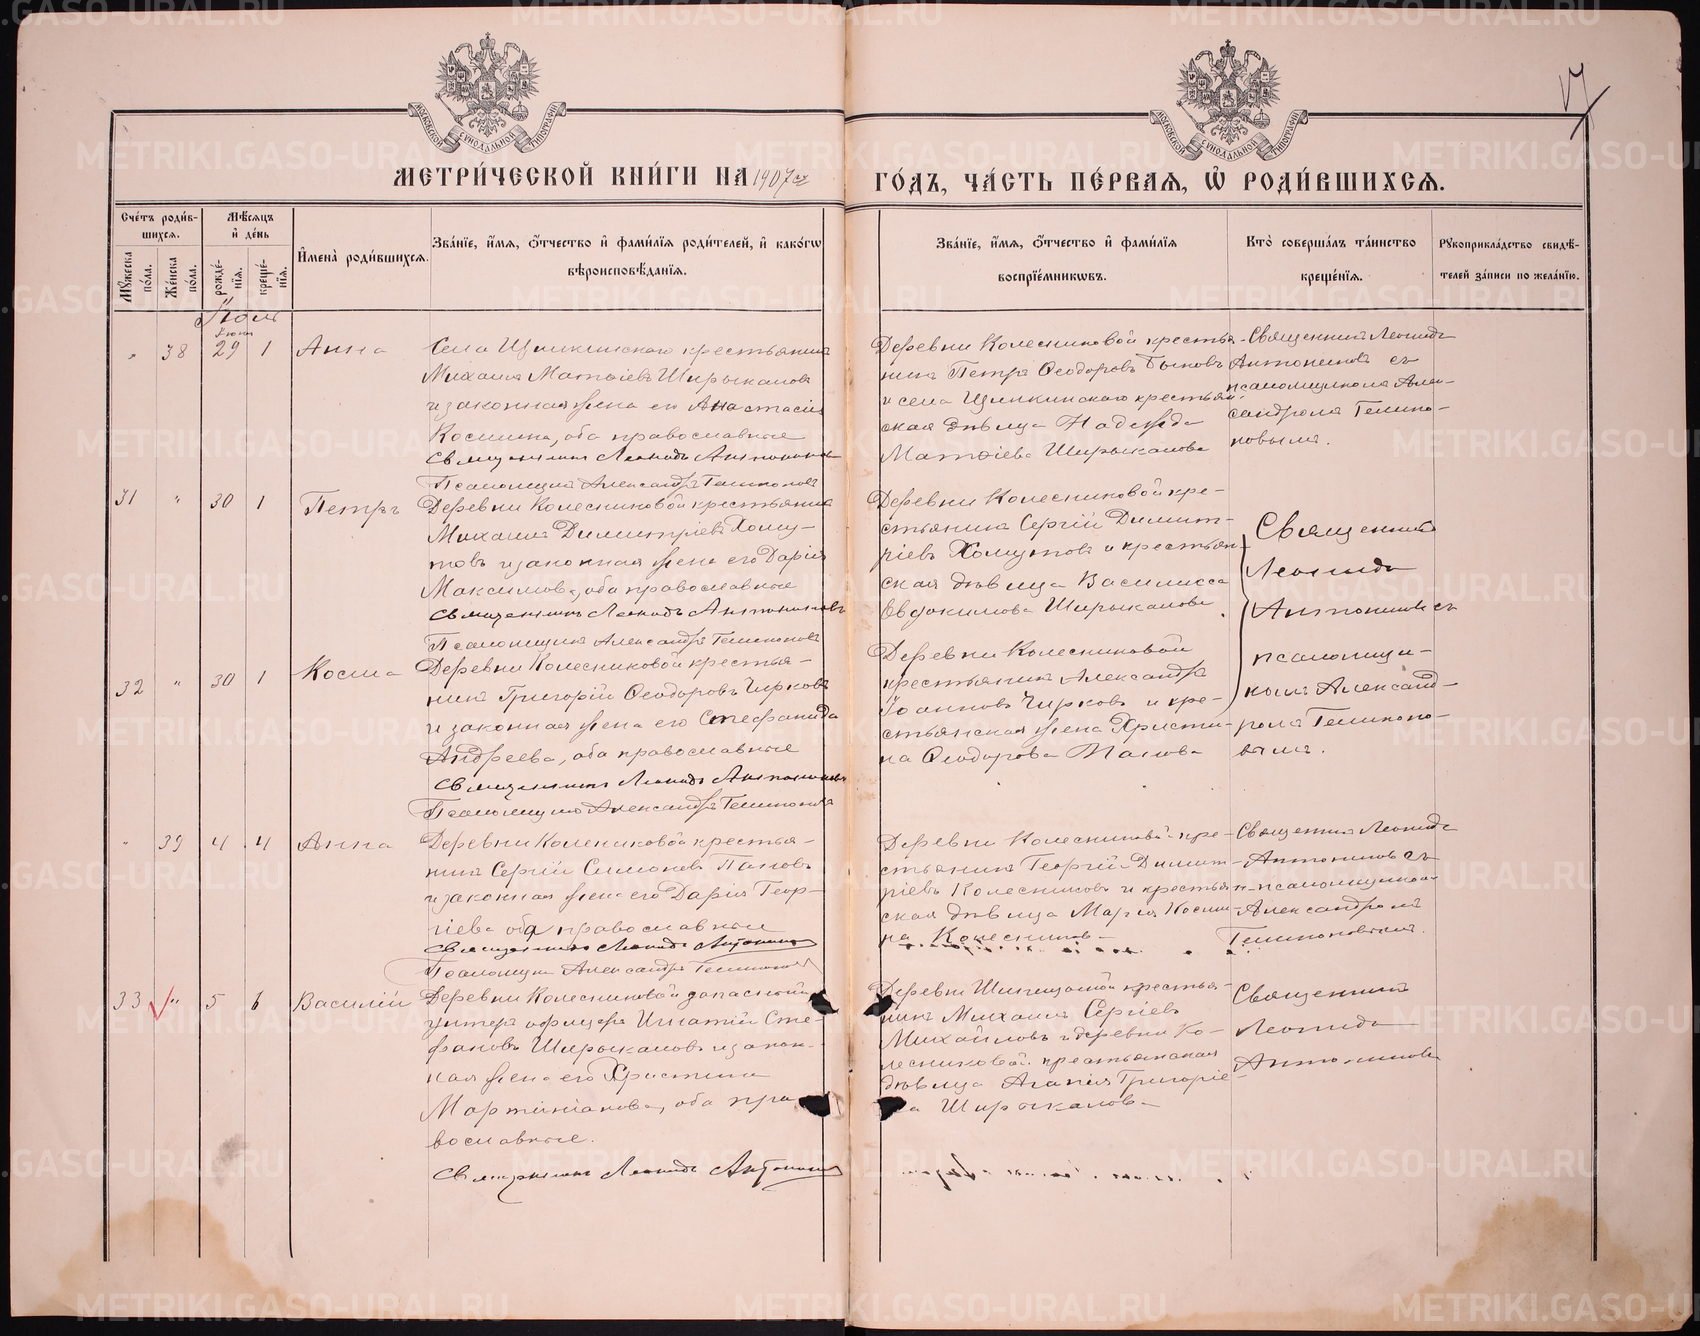 МЕТРИ́ЧЕСКОЙ КНИ́ГИ НА 1907 ГО́ДЪ, ЧА́СТЬ ПЕ́РВАЯ, Ѽ РОДИ́ВШИХСЯ.
МОСКОВСКОЙ СѴНОДАЛЬНОЙ ТИПОГРАФІИ
МОСКОВСКОЙ СѴНОДАЛЬНОЙ ТИПОГРАФІИ
Сче́тъ роди́вшихся.
Мꙋжеска по́ла.
Же́нска по́ла.
Мѣ́сяцъ и҆ де́нь
рожде́нїя.
креще́нїя.
И҆мена̀ роди́вшихся.
Зва́нїе, и҆́мя, ѻ҆́тчество и҆ фами́лїя роди́телей, и҆ како́гѡ
вѣроисповѣ́данїя.
Зва́нїе, и҆́мя, ѻ҆́тчество и҆ фами́лїя
воспрїе́мникѡвъ.
Кто̀ соверша́лъ та́инство
креще́нїя.
Рꙋкоприкла́дство свидѣ́-
телей за́писи по жела́нїю.
Іюль
Іюня
" 38 29 1 Анна
Села Щипкинскаго крестьянинъ
Михаилъ Матѳіевъ Ширыкаловъ
и законная жена его Анастасія
Космина, оба православные
Священникъ Леонидъ Антониновъ
Псаломщикъ Александръ
Деревни Колесниковой крестья-
нинъ Петръ Ѳеодоровъ Быковъ
и села Щипкинскаго крестьян-
ская дѣвица Надежда
Матѳіева Ширыкалова
Священникъ Леонидъ
Антониновъ съ
псаломщикомъ Алек-
сандромъ
31 " 30 1 Петръ
Деревни Колесниковой крестьянинъ
Михаилъ Димитріевъ Хому-
товъ и законная жена его Дарія
Максимова, оба православные
Священникъ Леонидъ Антониновъ
Псаломщикъ Александръ
Деревни Колесниковой кре-
стьянинъ Сергій Димит-
ріевъ Хомутовъ и крестьян-
ская дѣвица Василисса
Евдокимова Ширыкалова
Священникъ
Леонидъ
Антониновъ съ
псаломщи-
комъ Александ-
ромъ
32 " 30 1 Косма
Деревни Колесниковой крестья-
нинъ Григорій Ѳеодоровъ Чирковъ
и законная жена его Стефанида
Андреева, оба православные
Священникъ Леонидъ Антониновъ
Псаломщикъ Александръ
Деревни Колесниковой
крестьянинъ Александръ
Іоанновъ Чирковъ и кре-
стьянская жена Христи-
на Ѳеодорова Панова
" 39 4 4 Анна
Деревни Колесниковой крестья-
нинъ Сергій Симоновъ Пановъ
и законная жена его Дарія Геор-
гіева оба православные
Священникъ Леонидъ Антониновъ
Псаломщикъ Александръ
Деревни Колесниковой кре-
стьянинъ Георгій Димит-
ріевъ Колесниковъ и крестьян-
ская дѣвица Марія Косми-
на Колесникова
Священникъ Леонидъ
Антониновъ съ
псаломщикомъ
Александромъ
33 " 5 6 Василій
Деревни Колесниковой запасный
унтеръ офицеръ Игнатій Сте-
фановъ Ширыкаловъ и закон-
ная жена его Христина
Мартиніанова, оба пра-
вославные.
Священникъ Леонидъ Антониновъ
Деревни крестья-
нинъ Михаилъ Сергіевъ
Михайловъ и деревни Ко-
лесниковой крестьянская
дѣвица Агапія Григоріе-
ва Ширыкалова
Священникъ
Леонидъ
Антониновъ
METRIKI.GASO-URAL.RU